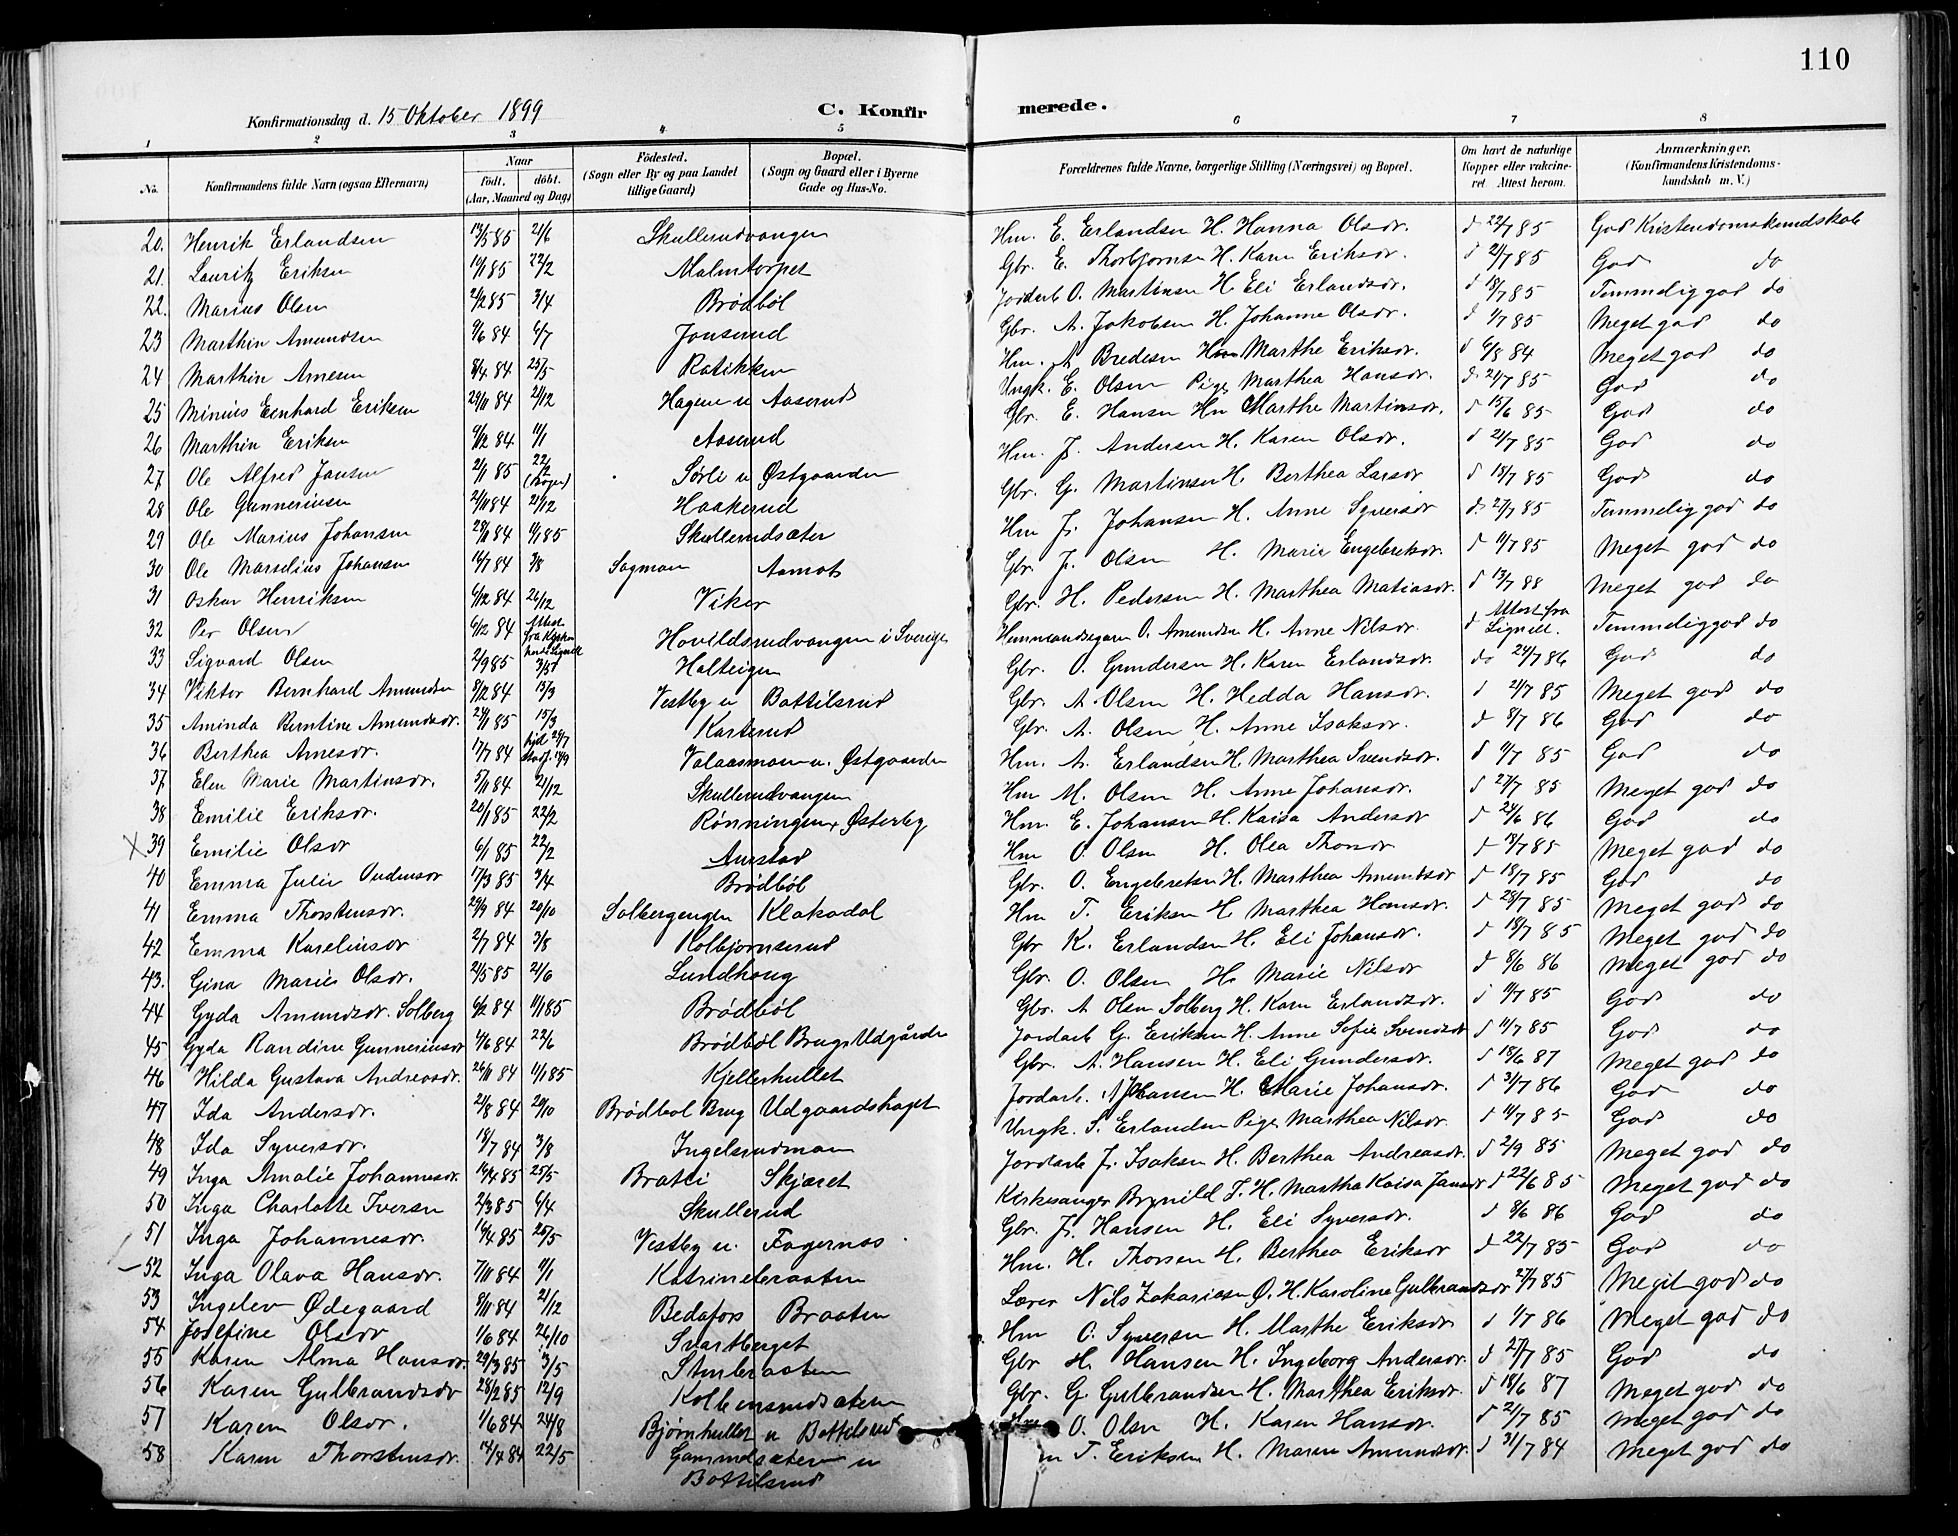 110
Konfirmationsdag d. 15 Oktober 1899
C. Konfirmerede.
1 2 3 4 5 6 7 8
No. Konfirmandens fulde Navn (ogsaa Efternavn) Naar født. døbt. (Aar, Maaned og Dag) Fødested. (Sogn eller By og paa Landet tillige Gaard) Bopæl. (Sogn og Gaard eller i Byerne Gade og Hus-No. Forældrenes fulde Navne, borgerlige Stilling (Næringsvei) og Bopæl. Om havt de naturlige Kopper eller vakcineret Attest herom. Anmærkninger. (Konfirmandens Kristendomskundskab m. V.)
20. Henrik Erlandsen 13/5 85 21/6 Skullerudvangen Hm. E. Erlandsen H. Hanna Olsdr. d 22/7 85 God Kristendomskundskab
21. Lauritz Eriksen 85 22/2 Malmtorpet Gbr. E. Thorbjørnsen H. Karen Eriksdr. d 21/7 85 God do
22. Marius Olsen 2/2 85 3/4 Brødbøl Jordarb O. Martinsen H Eli Erlandsdr. d 18/7 85 Temmelig god do
23 Marthin Amundsen 9/6 84 6/7 Jonserud Gbr. A. Jakobsen H. Johanne Olsdr. d 1/7 85 Meget god do
24 Marthin Arnesen 8/4 84 25/5 Ratikken Hm. A Bredesen H Marthe Eriksdr. d 6/8 84 Meget god do
25 Minius Eenhard Eriksen 29/11 84 21/12 Hagen u Aaserud Ungk. E. Olsen Pige Marthea Hansdr. d. 21/7 85 God do
26 Marthin Eriksen 9/12 84 1/1 Aaserud Gbr. E. Hansen Hu Marthe Martinsdr. d 15/6 85 God do
27 Ole Alfred Jansen 2/1 85 22/2 Sørli u Østgaarden Hm. J. Andersen H. Karen Olsdr. d 21/7 85 God do
28 Ole Gunneriusen 21/11 84 21/12 Haakerud Gbr. G. Martinsen H. Berthea Larsdr d 18/7 85 God do
29 Ole Marius Johansen 28/11 84 1/1 85 Skullerudsæter Hm J. Johansen H. Anne Syversdr d. 27/7 85 Temmelig god do
30 Ole Marselius Johansen 14/7 84 3/8 Sagmoen Aamot Gbr. J. Olsen H. Marie Engebretsdr. d 11/7 85 Meget god do
31 Oskar Henriksen 6/12 84 26/12 Viker Gbr. H. Pedersen H. Marthea Matiasdr. d 13/7 88 Meget god do
32 Per Olsen 6/2 84 Attest fra Hovildsrudvangen i Sverige O. Amundsen H. Anne Nilsdr. d Attest fra Temmelig god do
33 Sigvard Olsen 2/9 85 3/5 Halteigen Gbr. O. Gundersen H. Karen Erlandsdr. do 24/7 86 God do
34 Viktor Bernhard Amundsen 8/12 84 15/3 Vestby u Bottilsrud Gbr. A. Olsen H. Hedda Hansdr. d 21/7 85 Meget god do
35 Aminda Berntine Amundsdr. 24/1 85 15/3 Karterud Gbr. A. Olsen H. Anne Isaksdr. d 8/7 86 God do
36 Berthea Arnesdr. 17/7 84 Valaasmoen u. Østgaarden Hm. A. Erlandsen H. Marthea Svendsdr. d 1/7 85 God do
37. Elen Marie Martinsdr. 5/11 84 21/12 Skullerudvangen Hm M. Olsen H. Anne Johansdr. d 27/7 85 Meget god do
38 Emilie Eriksdr. 20/1 85 22/2 Rønningen, Østerby Hm. E. Johansen H. Kaisa Andersdr d 24/6 86 God do
39 Emilie Olsdr 6/1 85 22/2 Aurstad Hm O. Olsen H. Olea Thorsdr d 13/7 85 Meget god do
40 Emma Julie Oudensdr 17/3 85 3/4 Brødbøl Gbr. O. Engebretsen H. Marthea Amundsdr d 18/7 85 God do
41 Emma Thorstensdr. 29/9 84 20/10 Solbergengen Klakadal Hm T. Eriksen H. Marthea Hansdr. d 28/7 85 Meget god do
42 Emma Karelinsdr 2/7 84 3/8 Kolbjørnserud Gbr K. Erlandsen H. Eli Johansdr. d 18/7 85 Meget god do
43. Gina Marie Olsdr. 21/5 85 21/6 Lundhaug Gbr. O. Olsen H. Marie Nilsdr d 8/6 86 Meget god do
44 Gyda Amundsdr. Solberg 6/12 84 11/1 85 Brødbøl Gbr. A Olsen Solberg H. Karen Erlandsdr. d 11/7 85 God do
45 Gyda Randine Gunneriusdr 1/6 84 22/6 Brødbøl Brugs Udgården Jordarb G. Eriksen H. Anne Sofie Svendsdr d 11/7 85 God do
46 Hilda Gustava Andreasdr. 26/11 84 1/1 85 Kjellerhullet Gbr. A. Hansen H. Eli Gundersdr. d 18/6 87 Meget god do
47 Ida Andersdr. 21/8 84 20/10 Brødbøl Brug Udgaardshapet Jordarb. A Johansen H. Marie Johansdr. d 31/7 86 God do
48 Ida Syversdr. 18/7 84 3/8 Ingelsrudmoen Ungk. S. Erlandsen Pige Marthea Nilsdr. d 11/7 85 God do
49 Inga Amalie Johannesdr. 85 25/5 Bratli Skjæret Jordarb J. Isaksen H. Berthea Andreasdr. d 2/9 85 Meget god do
50 Inga Charlotte Iversen 2/3 85 6/4 Skullerud Kirkesanger Brynild I. H. Martha Kaisa Jansdr d 22/6 85 Meget god do
51 Inga Johannesdr. 16/4 85 25/5 Vestby u. Fagernæs Gbr. J. Hansen H. Eli Syversdr. d 8/6 86 God do
52 Inga Olava Hansdr. 7/11 84 1/1 Katrinebraaten Hm. H. Thorsen H. Berthea Eriksdr d 22/7 85 God do
53 Ingelev Ødegaard 8/11 84 21/12 Bedafors Braaten Lærer Nils Zakariasen Ø. H. Karoline Gulbrandsdr 27/7 85 Meget god do
54 Josefine Olsdr 1/6 84 26/10 Svartberget Hm O. Syversen H. Marthe Eriksdr d 1/7 86 Meget god do
55 Karen Alma Hansdr. 29/3 85 3/5 Stubraaten Gbr H. Hansen H. Ingeborg Andersdr. d 27/7 85 God do
56 Karen Gulbrandsdr 28/2 85 12/9 Kolbensrudsæteren Gbr. G. Gulbrandsen H. Marthea Eriksdr. d 18/6 87 Meget god do
57 Karen Olsdr. 1/6 84 24/8 Bjørnhullet u Bottilsrud Hm O. Olsen H. Karen Hansdr. d 21/7 85 Meget god do
58 Karen Thorstensdr. 14/4 84 22/5 Gammelsæteren u Bottilsrud T. Eriksen H. Maren Amundsdr. d 31/7 84 Meget god do